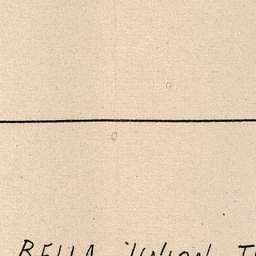 BELLA UNION T